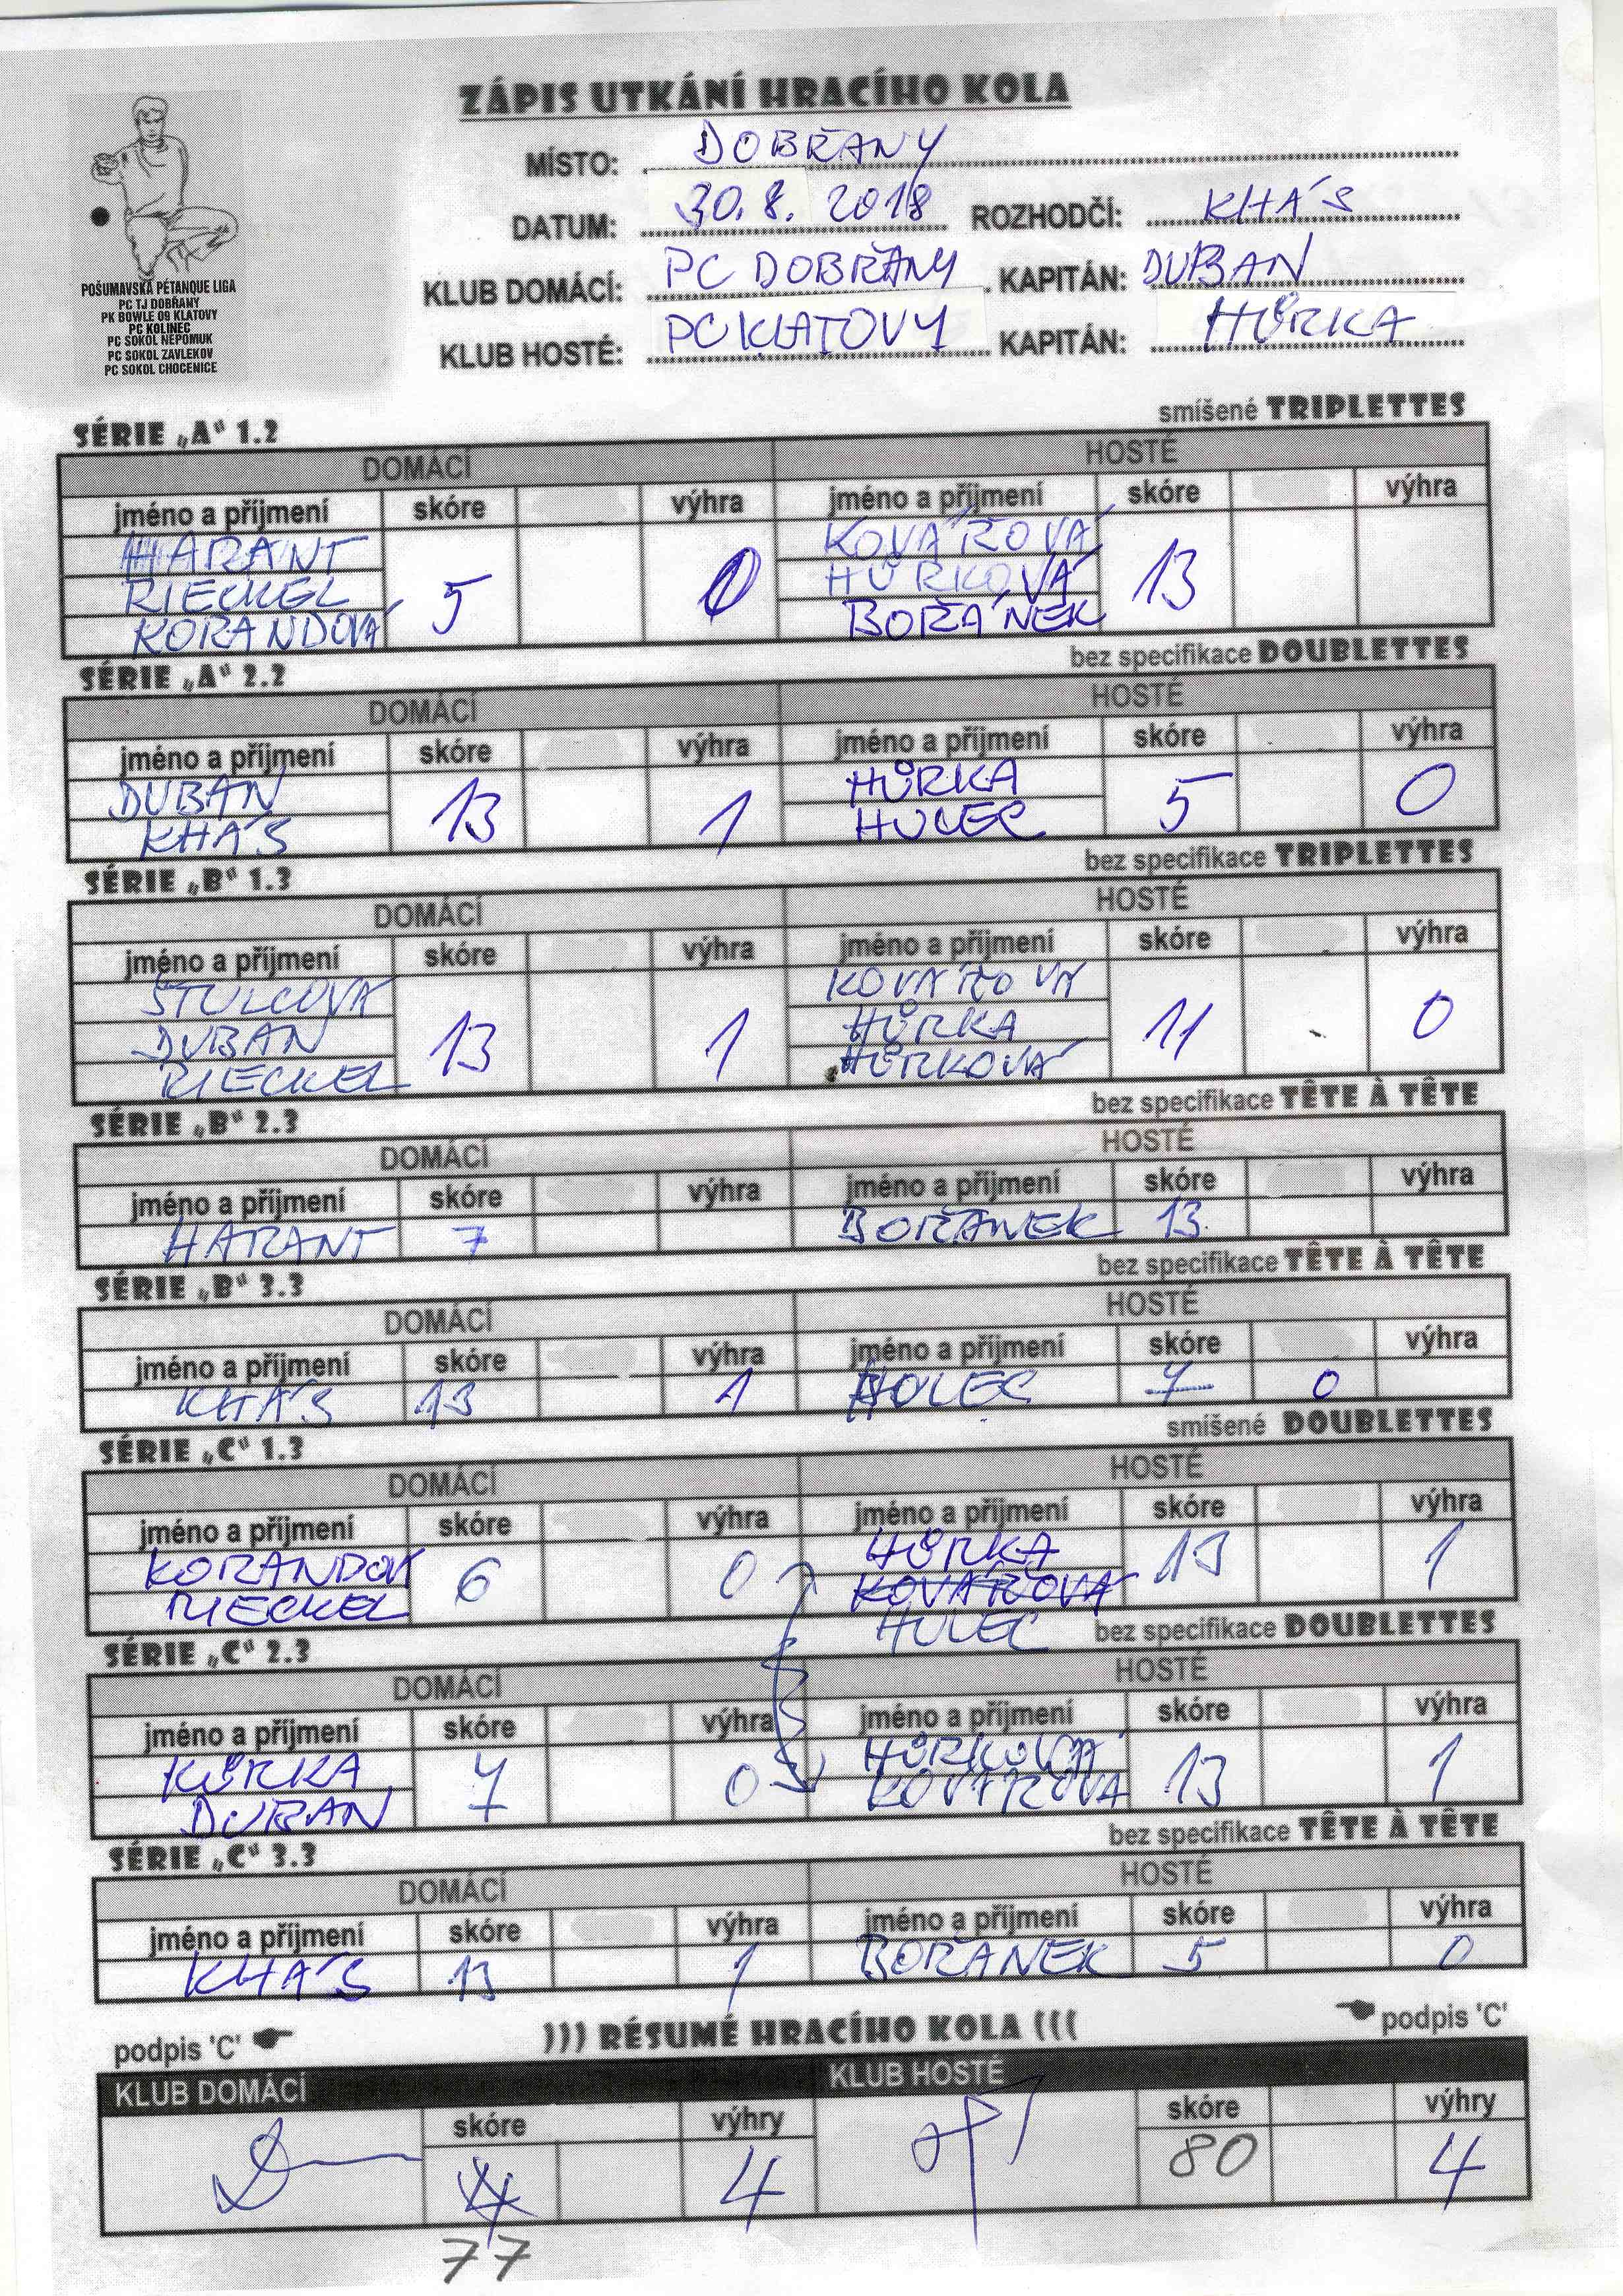 ZÁPIS UTKÁNÍ HRACÍHO KOLA
MÍSTO: DOBŘANY
DATUM: 30.8. 2018 ROZHODČÍ: KHÁS
KLUB DOMÁCÍ: PC DOBŘANY KAPITÁN: DUBAN
KLUB HOSTÉ: PC KLATOVY KAPITÁN: HŮRKA
POŠUMAVSKÁ PÉTANQUE LIGA
PC TJ DOBŘANY
PK BOWLE 09 KLATOVY
PC KOLINEC
PC SOKOL NEPOMUK
PC SOKOL ZAVLEKOV
PC SOKOL CHOCENICE
SÉRIE „A“ 1.2 smíšené TRIPLETTES
DOMÁCÍ HOSTÉ
jméno a příjmení skóre výhra jméno a příjmení skóre výhra
HARANT KOVÁŘOVÁ
RIECKEL 5 0 HŮRKOVÁ 13
KORANDOVÁ BOŘÁNEK
SÉRIE „A“ 2.2 bez specifikace DOUBLETTES
DOMÁCÍ HOSTÉ
jméno a příjmení skóre výhra jméno a příjmení skóre výhra
DUBAN 13 1 HŮRKA 5 0
KHÁS HULEC
SÉRIE „B“ 1.3 bez specifikace TRIPLETTES
DOMÁCÍ HOSTÉ
jméno a příjmení skóre výhra jméno a příjmení skóre výhra
ŠTULCOVÁ KOVÁŘOVÁ
DUBAN 13 1 HŮRKA 11 0
RIECKEL HŮRKOVÁ
SÉRIE „B“ 2.3 bez specifikace TÊTE À TÊTE
DOMÁCÍ HOSTÉ
jméno a příjmení skóre výhra jméno a příjmení skóre výhra
HARANT 7 BOŘÁNEK 13
SÉRIE „B“ 3.3 bez specifikace TÊTE À TÊTE
DOMÁCÍ HOSTÉ
jméno a příjmení skóre výhra jméno a příjmení skóre výhra
KHÁS 13 1 HOLEC 7 0
SÉRIE „C“ 1.3 smíšené DOUBLETTES
DOMÁCÍ HOSTÉ
jméno a příjmení skóre výhra jméno a příjmení skóre výhra
KORANDOV 6 0 HŮRKA 13 1
RIECKEL KOVÁŘOVÁ
HULEC
SÉRIE „C“ 2.3 bez specifikace DOUBLETTES
DOMÁCÍ HOSTÉ
jméno a příjmení skóre výhra jméno a příjmení skóre výhra
KŮRKA 7 0 HŮRKOVÁ 13 1
DUBAN KOVÁŘOVÁ
SÉRIE „C“ 3.3 bez specifikace TÊTE À TÊTE
DOMÁCÍ HOSTÉ
jméno a příjmení skóre výhra jméno a příjmení skóre výhra
KHÁS 13 1 BOŘÁNEK 5 0
podpis 'C' ))) RÉSUMÉ HRACÍHO KOLA ((( podpis 'C'
KLUB DOMÁCÍ KLUB HOSTÉ
skóre výhry skóre výhry
4 80 4
77